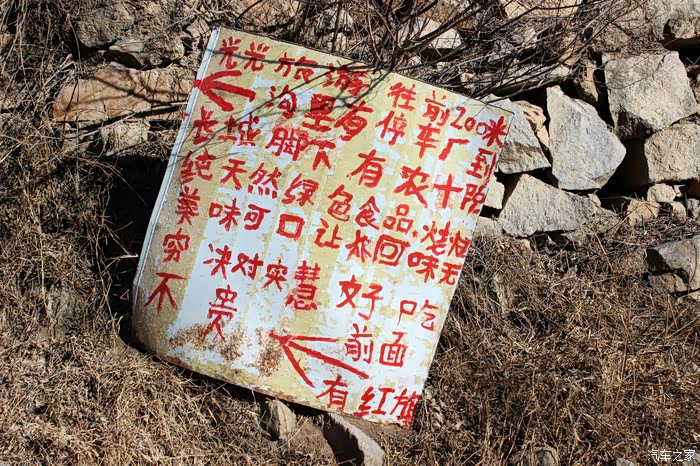 光光旅游往前200米
沟里有停车厂到
长城脚下有农十院
纯天然绿包食品.烧
美味可口让回味无
穷决对实慧好吃
不贵前面
有红旗
汽车之家